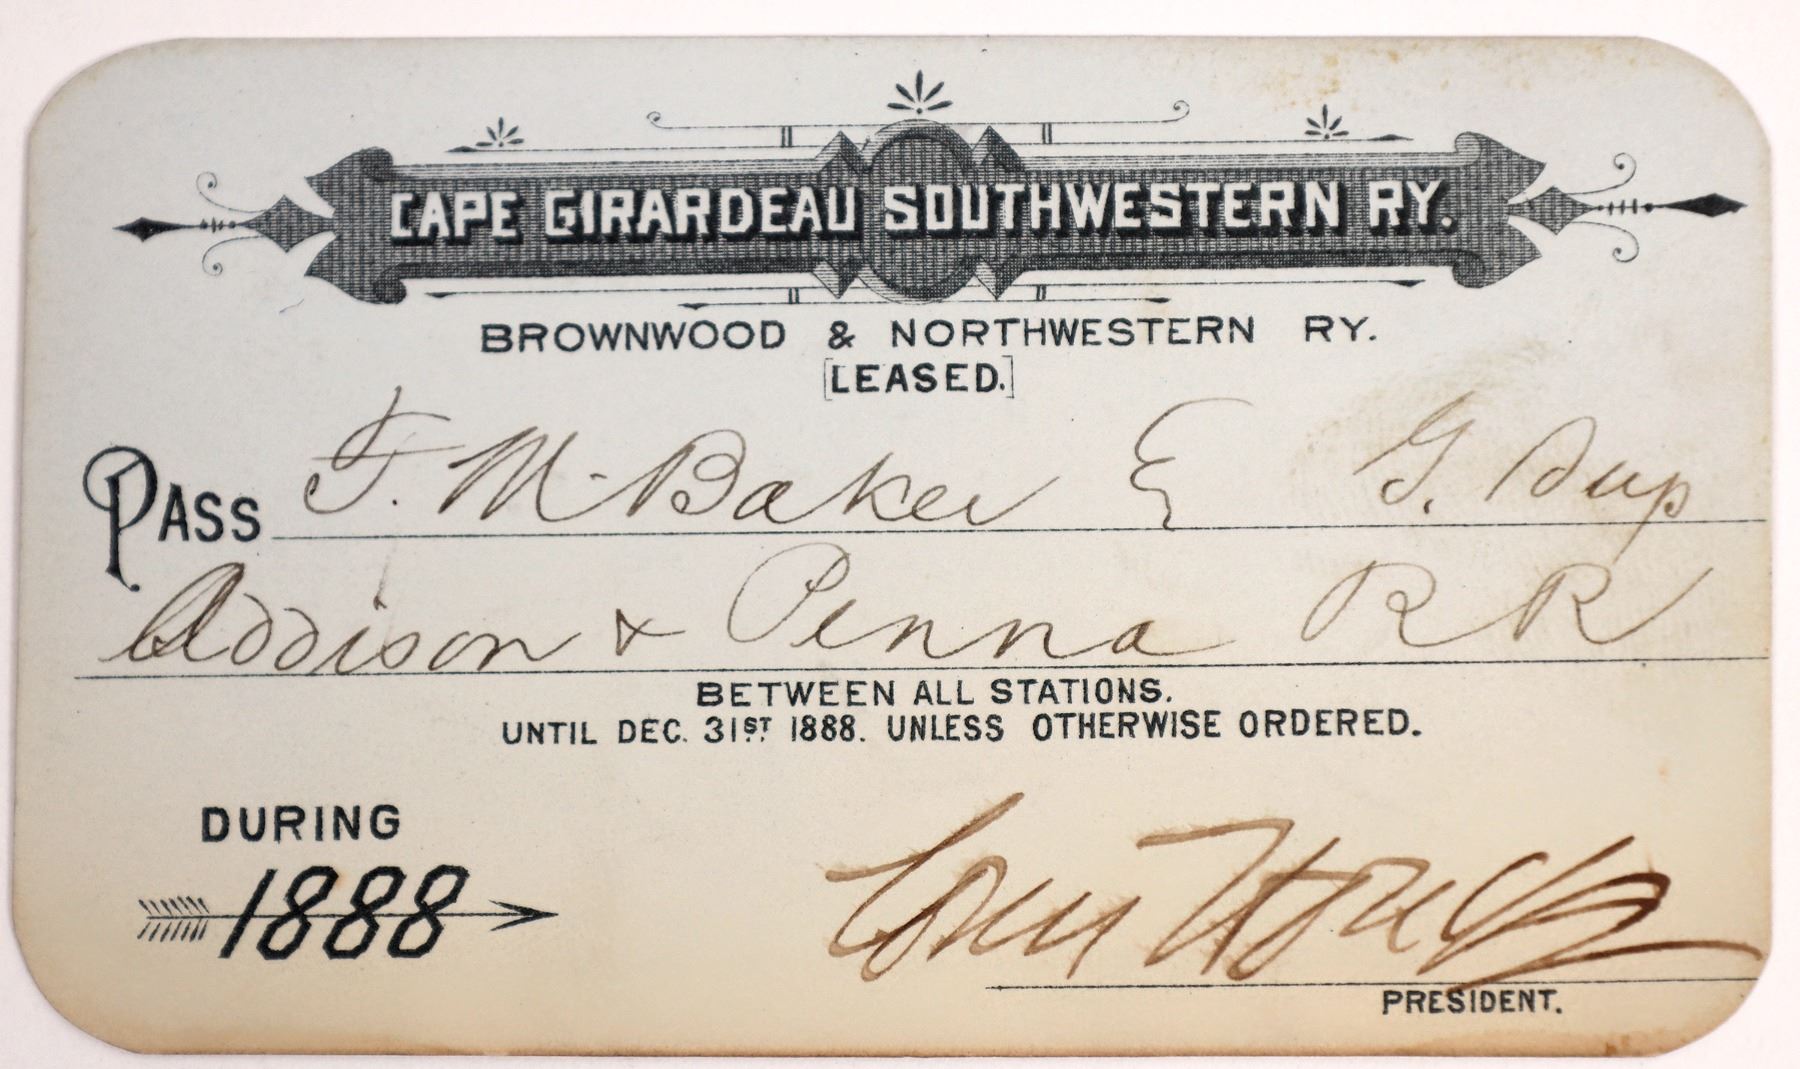 CAPE GIRARDEAU SOUTHWESTERN RY.
BROWNWOOD & NORTHWESTERN RY.
[LEASED.]
PASS F. M. Baker G. Sup
Addison & Penna R R
BETWEEN ALL STATIONS.
UNTIL DEC. 31ST 1888. UNLESS OTHERWISE ORDERED.
DURING
1888
Louis Houck
PRESIDENT.